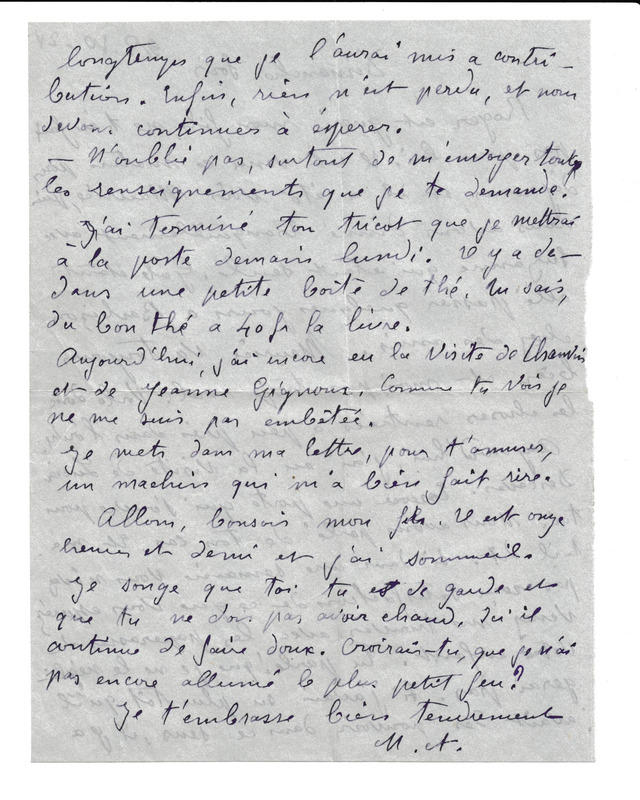 longtemps que je l'aurai mis a contri-
bution. Enfin, rien n'est perdu, et nous
devons continuer à espérer.
— N'oublie pas, surtout de m'envoyer tous
les renseignements que je te demande.
J'ai terminé ton tricot que je mettrai
à la poste demain lundi. Il y a de-
dans une petite boîte de thé. Tu sais,
du bon thé a 40 fr la livre.
Aujourd'hui, j'ai encore eu la visite de Chauvin
et de Jeanne Gignoux. Comme tu vois je
ne me suis pas embêtée.
Je mets dans ma lettre, pour t'amuser,
un machin qui m'a bien fait rire.
Allons, bonsoir mon fils. Il est onze
heures et demi et j'ai sommeil.
Je songe que toi tu es de garde et
que tu ne dois pas avoir chaud. Ici il
continue de faire doux. Croirais-tu, que je n'ai
pas encore allumé le plus petit feu?
Je t'embrasse bien tendrement
M. A.